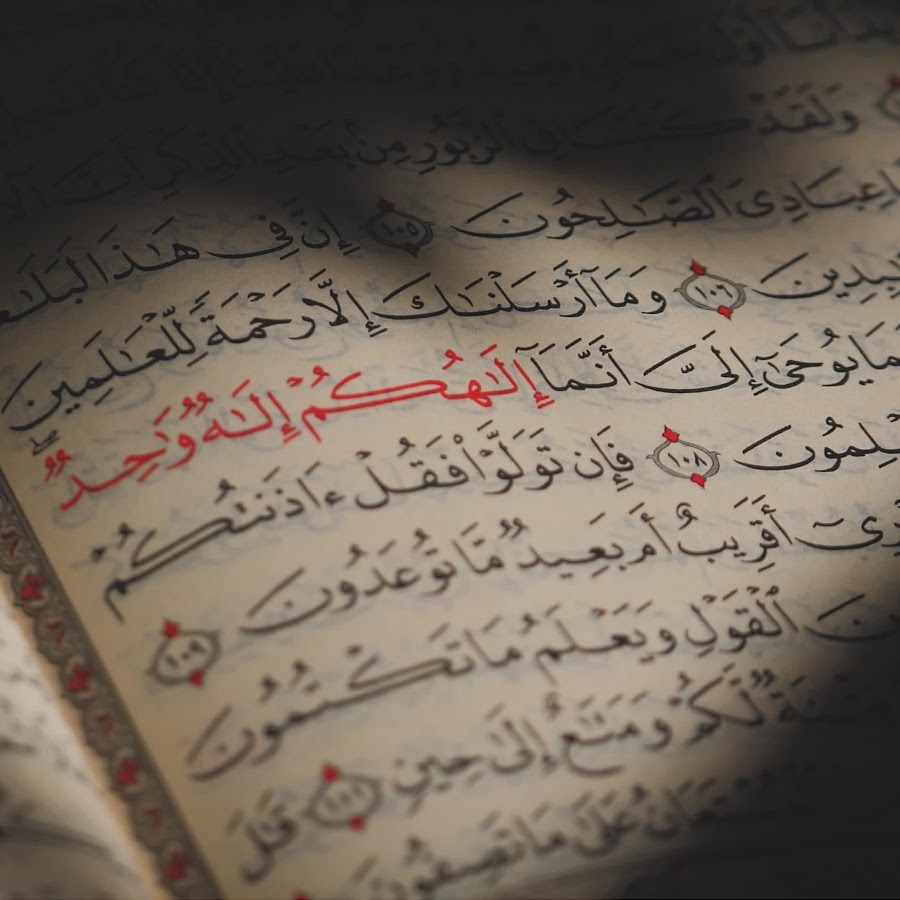 وَلَقَدْ كَتَبْنَا فِى ٱلزَّبُورِ مِنۢ بَعْدِ ٱلذِّكْرِ أَنَّ
عِبَادِىَ ٱلصَّٰلِحُونَ ١٠٥ إِنَّ فِى هَٰذَا لَبَلَٰغًا
١٠٦ وَمَآ أَرْسَلْنَٰكَ إِلَّا رَحْمَةً لِّلْعَٰلَمِينَ
يُوحَىٰٓ إِلَىَّ أَنَّمَآ إِلَٰهُكُمْ إِلَٰهٌ وَٰحِدٌ
١٠٨ فَإِن تَوَلَّوْا۟ فَقُلْ ءَاذَنتُكُمْ
أَقَرِيبٌ أَم بَعِيدٌ مَّا تُوعَدُونَ ١٠٩
ٱلْقَوْلِ وَيَعْلَمُ مَا تَكْتُمُونَ
لَّكُمْ وَمَتَٰعٌ إِلَىٰ حِينٍ ١١١ قَٰلَ
ٱلْمُسْتَعَانُ عَلَىٰ مَا تَصِفُونَ